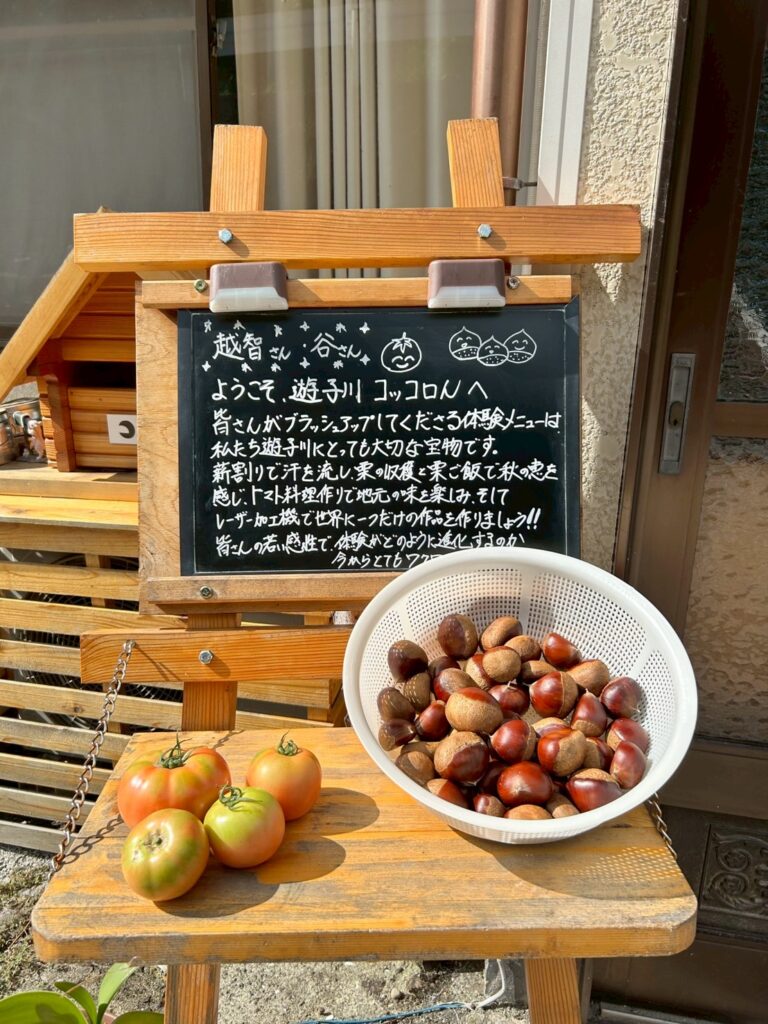 越智さん・谷さん
ようこそ、遊子川 コッコロんへ
皆さんがブラッシュアップしてくださる体験メニューは
私たち遊子川にとっても大切な宝物です。
薪割りで汗を流し、栗の収穫と栗ご飯で秋の恵を
感じ、トマト料理作りで地元の味を楽しみ、そして
レーザー加工機で世界に一つだけの作品を作りましょう!!
皆さんの若い感性で、体験がどのように進化するのか
今からとてもワク